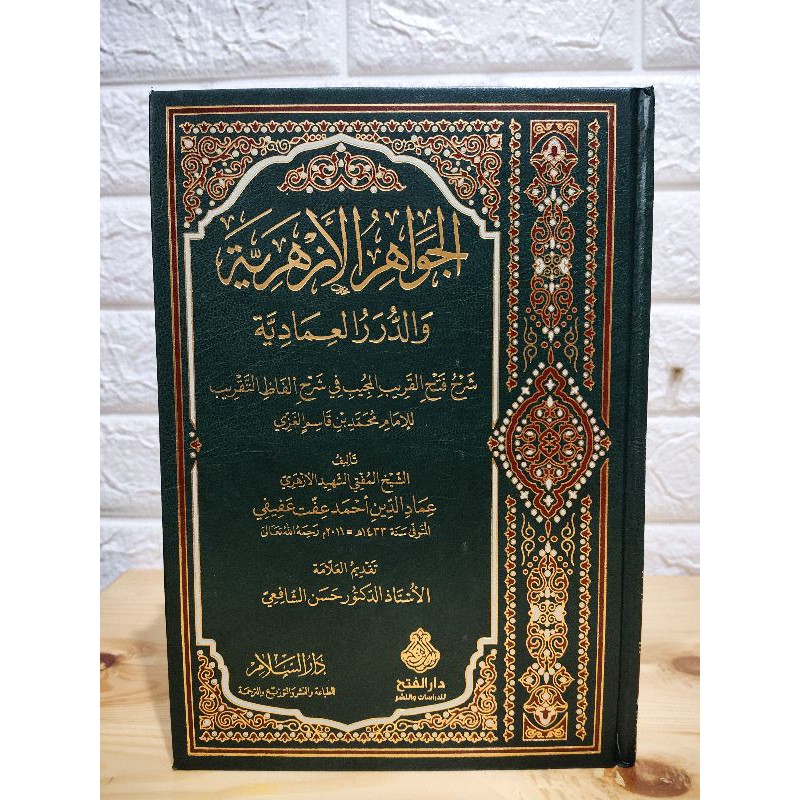 الجَوَاهِرُ الأَزْهَرِيَّة
وَالدُّرَرُ العِمَادِيَّة
شَرْحُ فَتْحِ القَرِيبِ المُجِيبِ فِي شَرْحِ أَلْفَاظِ التَّقْرِيبِ
لِلإمَامِ مُحَمَّد بْنِ قَاسِمٍ الغَزِّي
تَأليفُ
الشَّيْخ المُفْتِي الشَّهِيدِ الأَزْهَرِيّ
عِمَادِ الدِّينِ أَحْمَد عِفَّت عَفِيفِي
المُتَوَفَّى سَنَة ١٤٣٣هـ = ٢٠١١م رَحِمَهُ اللهُ تَعَالَى
تَقْدِيمُ العَلَّامَة
الأُسْتَاذِ الدُّكْتُور حَسَن الشَّافِعِيّ
دار الفتح
للدراسات والنشر
دَارُ السَّلَام
للطباعة والنشر والتوزيع والترجمة